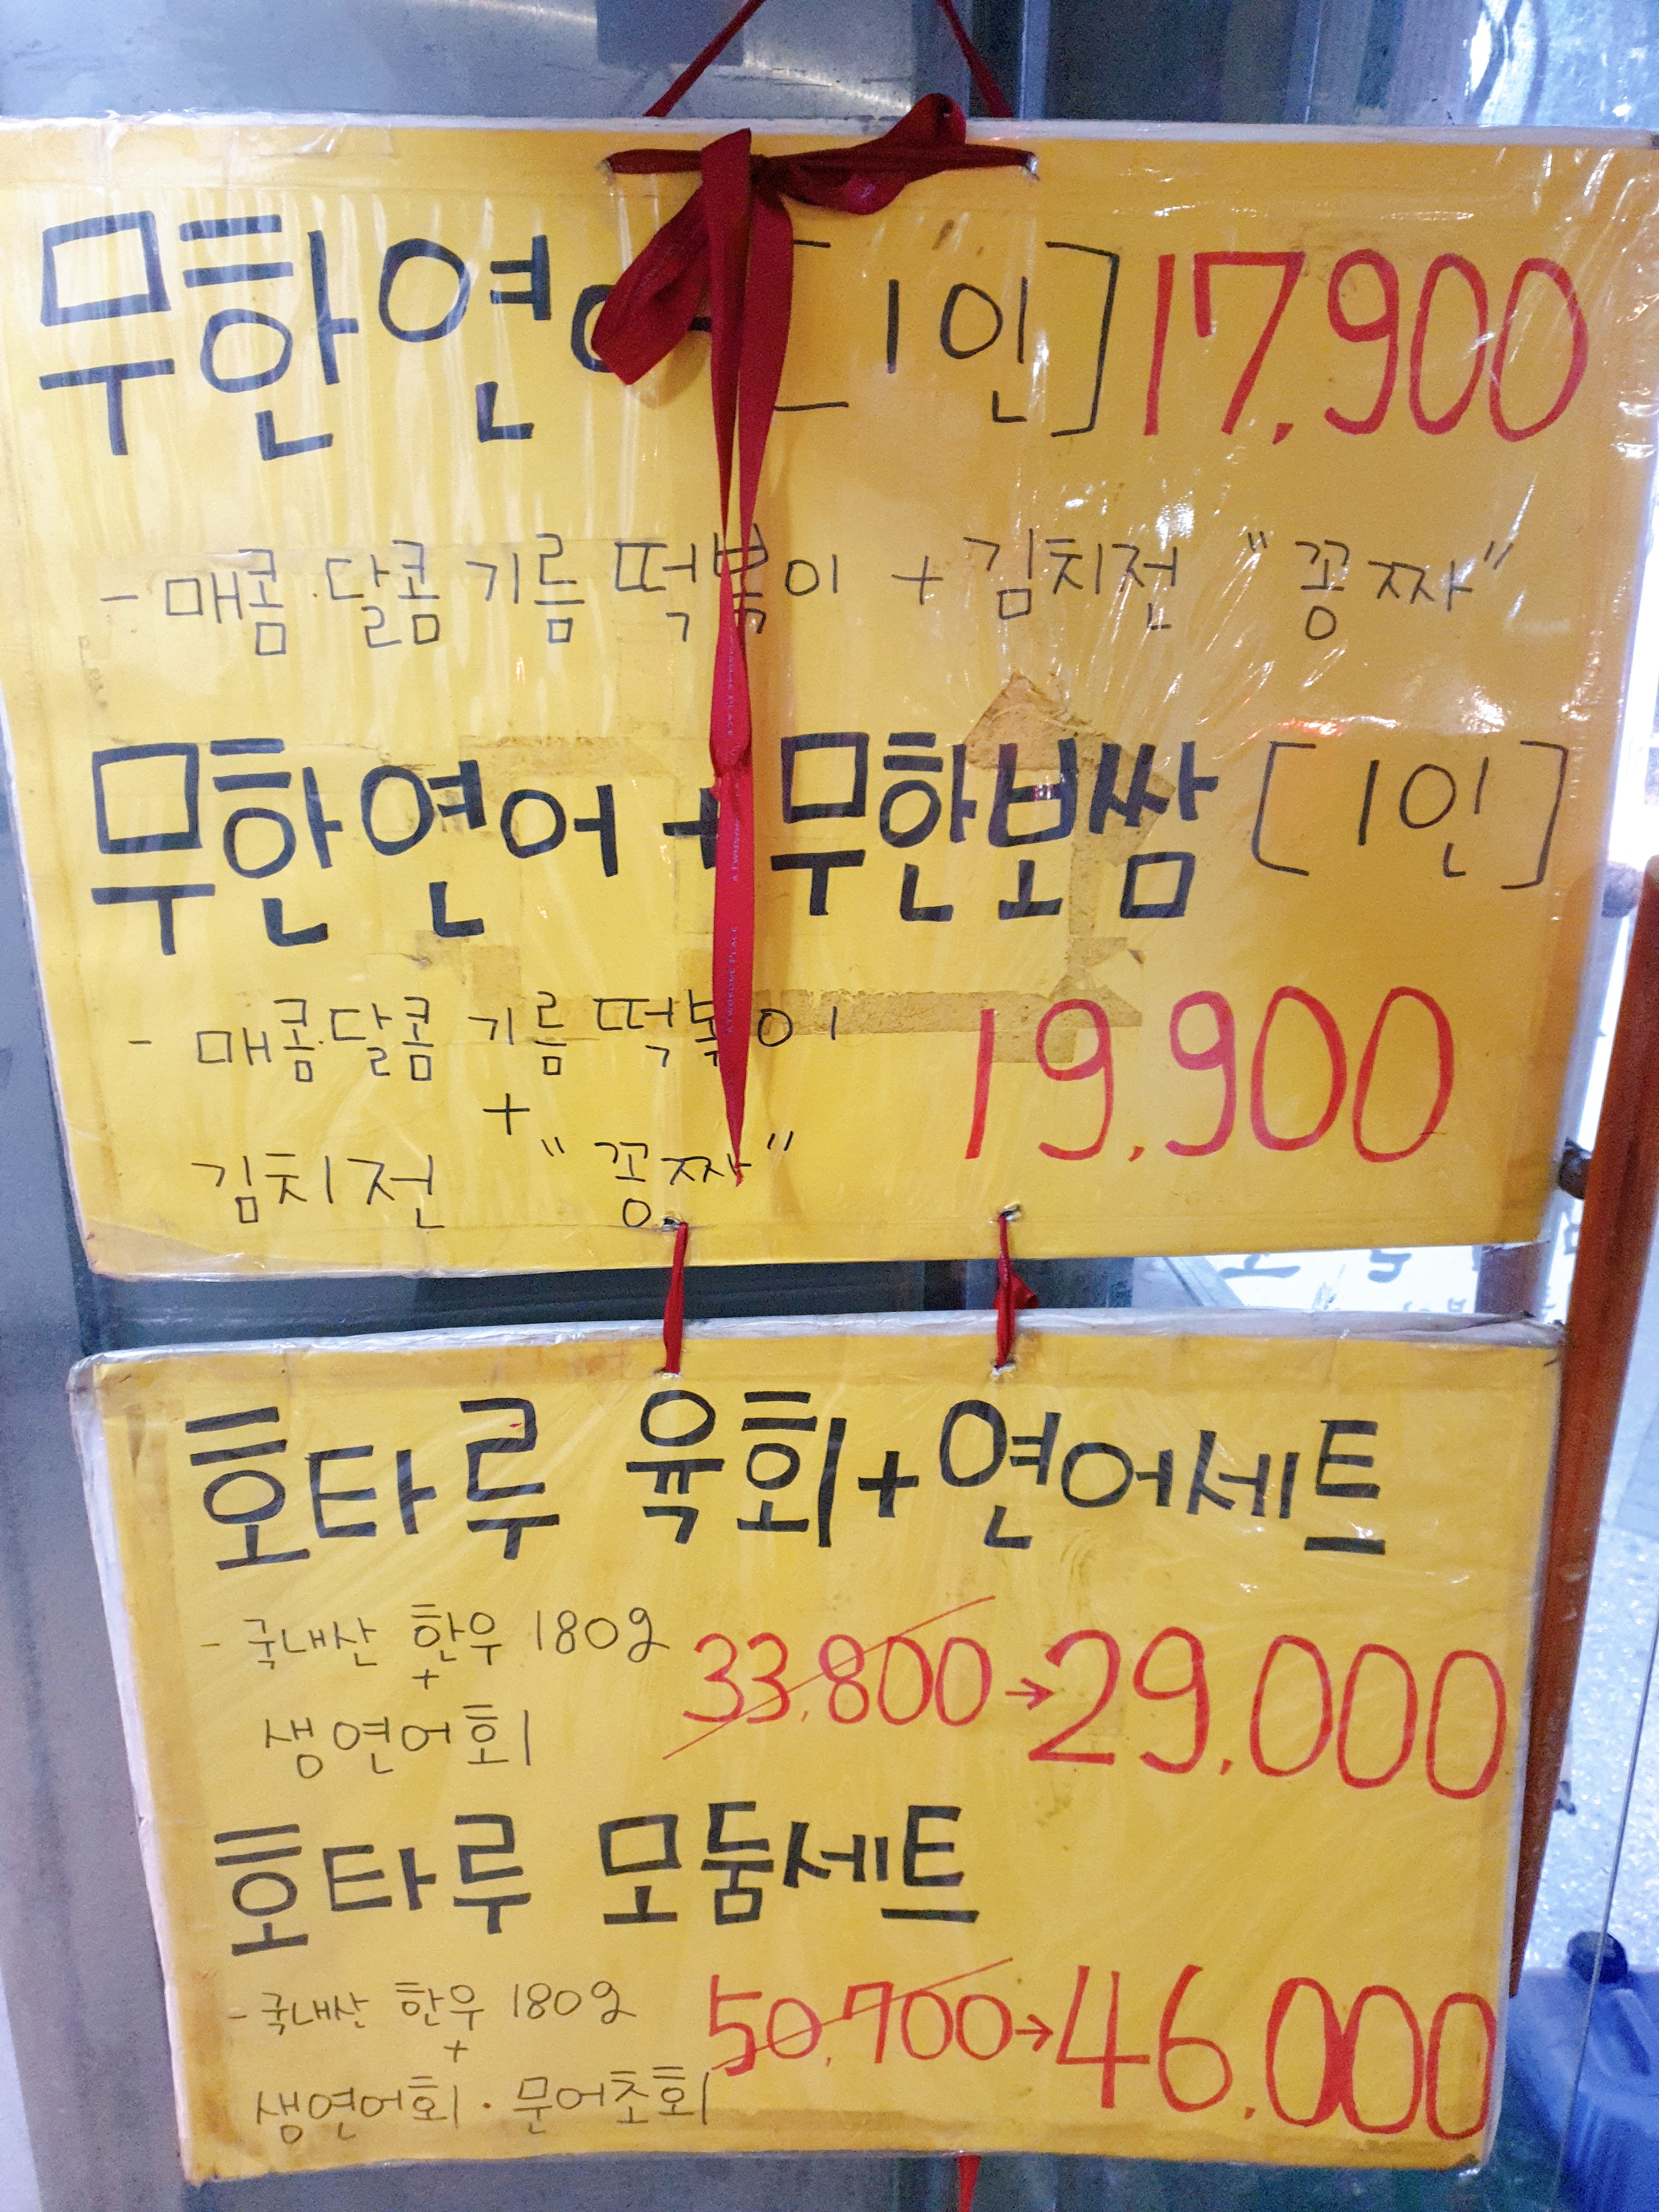 무한연어 [1인] 17,900
- 매콤·달콤 기름 떡볶이 + 김치전 "꽁짜"
무한연어 + 무한보쌈 [1인]
- 매콤·달콤 기름 떡볶이
+
김치전 "꽁짜"
19,900
호타루 육회+연어세트
- 국내산 한우 180g
+
생연어회
33,800→29,000
호타루 모둠세트
- 국내산 한우 180g
+
생연어회·문어초회
50,700→46,000